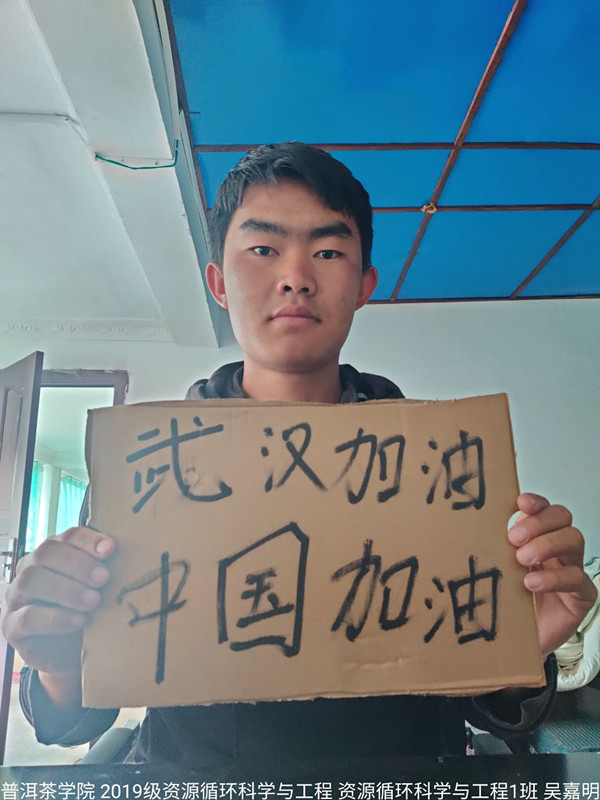 武汉加油
中国加油
普洱茶学院 2019级资源循环科学与工程 资源循环科学与工程1班 吴嘉明